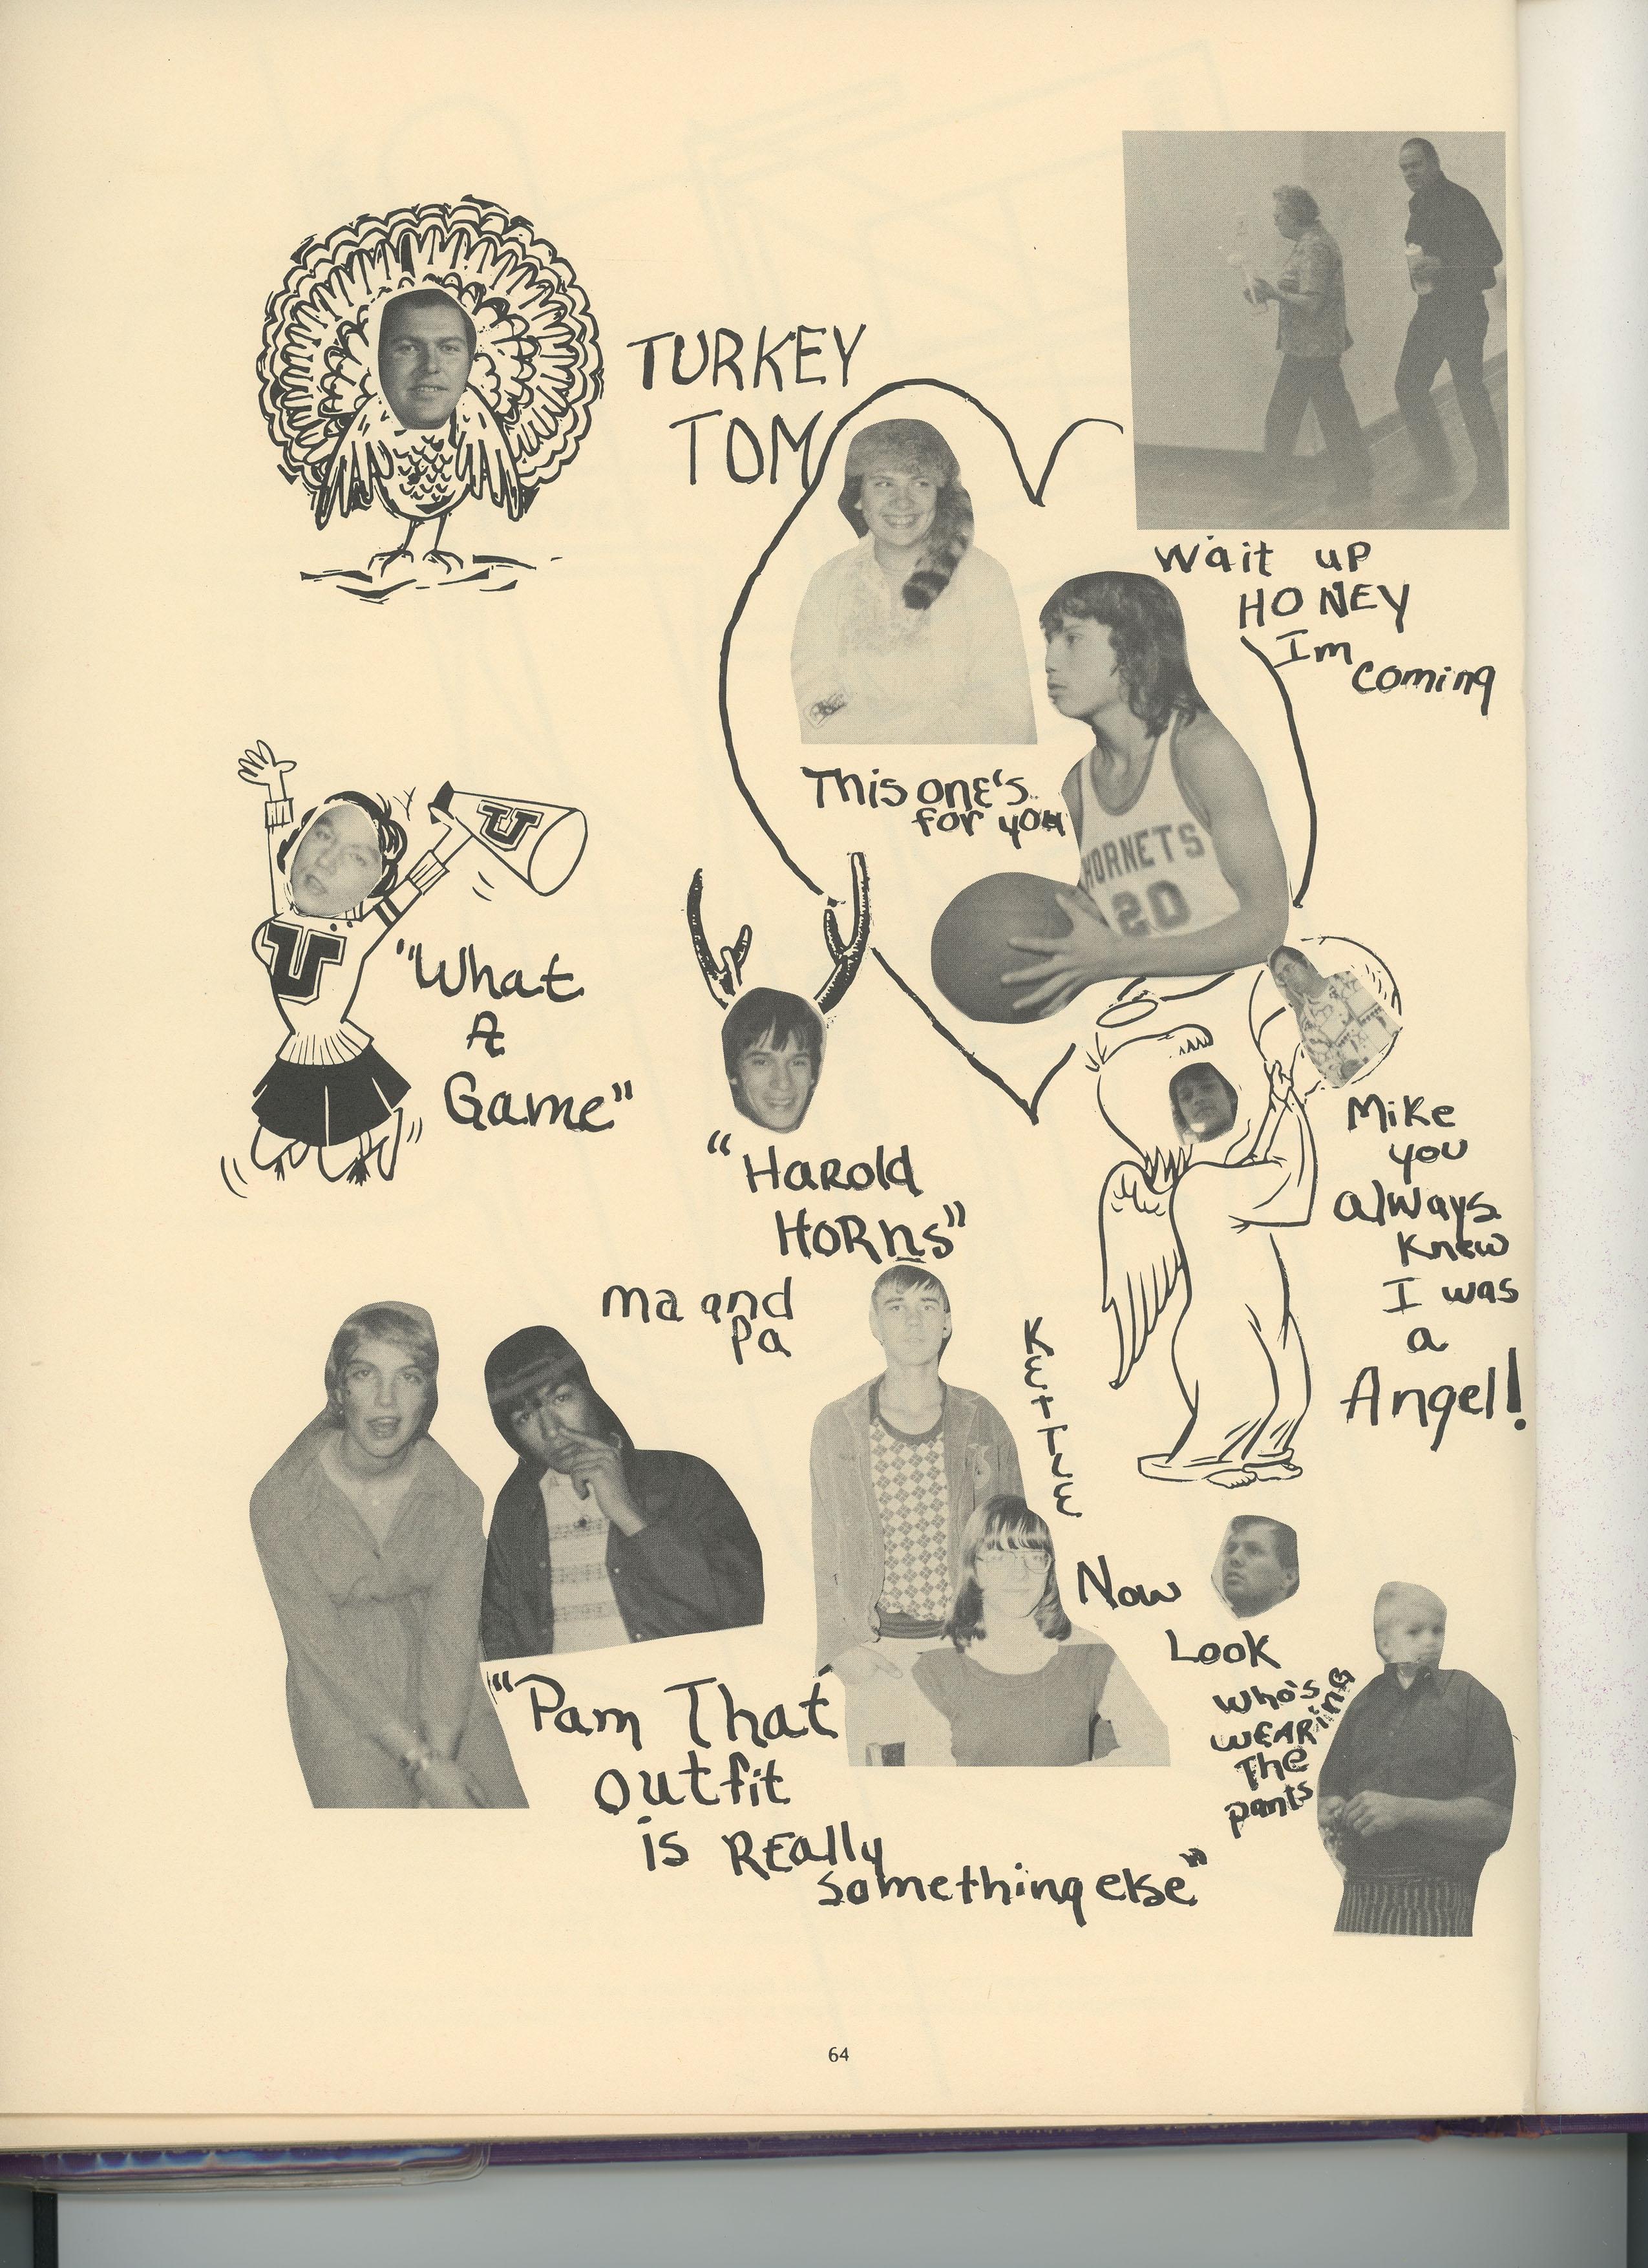 TURKEY
TOM
Wait up
HONEY
Im
coming
This one's
for you
HORNETS
20
U
U
"What
A
Game"
"Harold
HORns"
Mike
you
always
knew
I was
a
Angel!
ma and
pa
KETTLE
Now
Look
who's
WEARING
The
pants
"Pam That
outfit
is REally
something else"
64